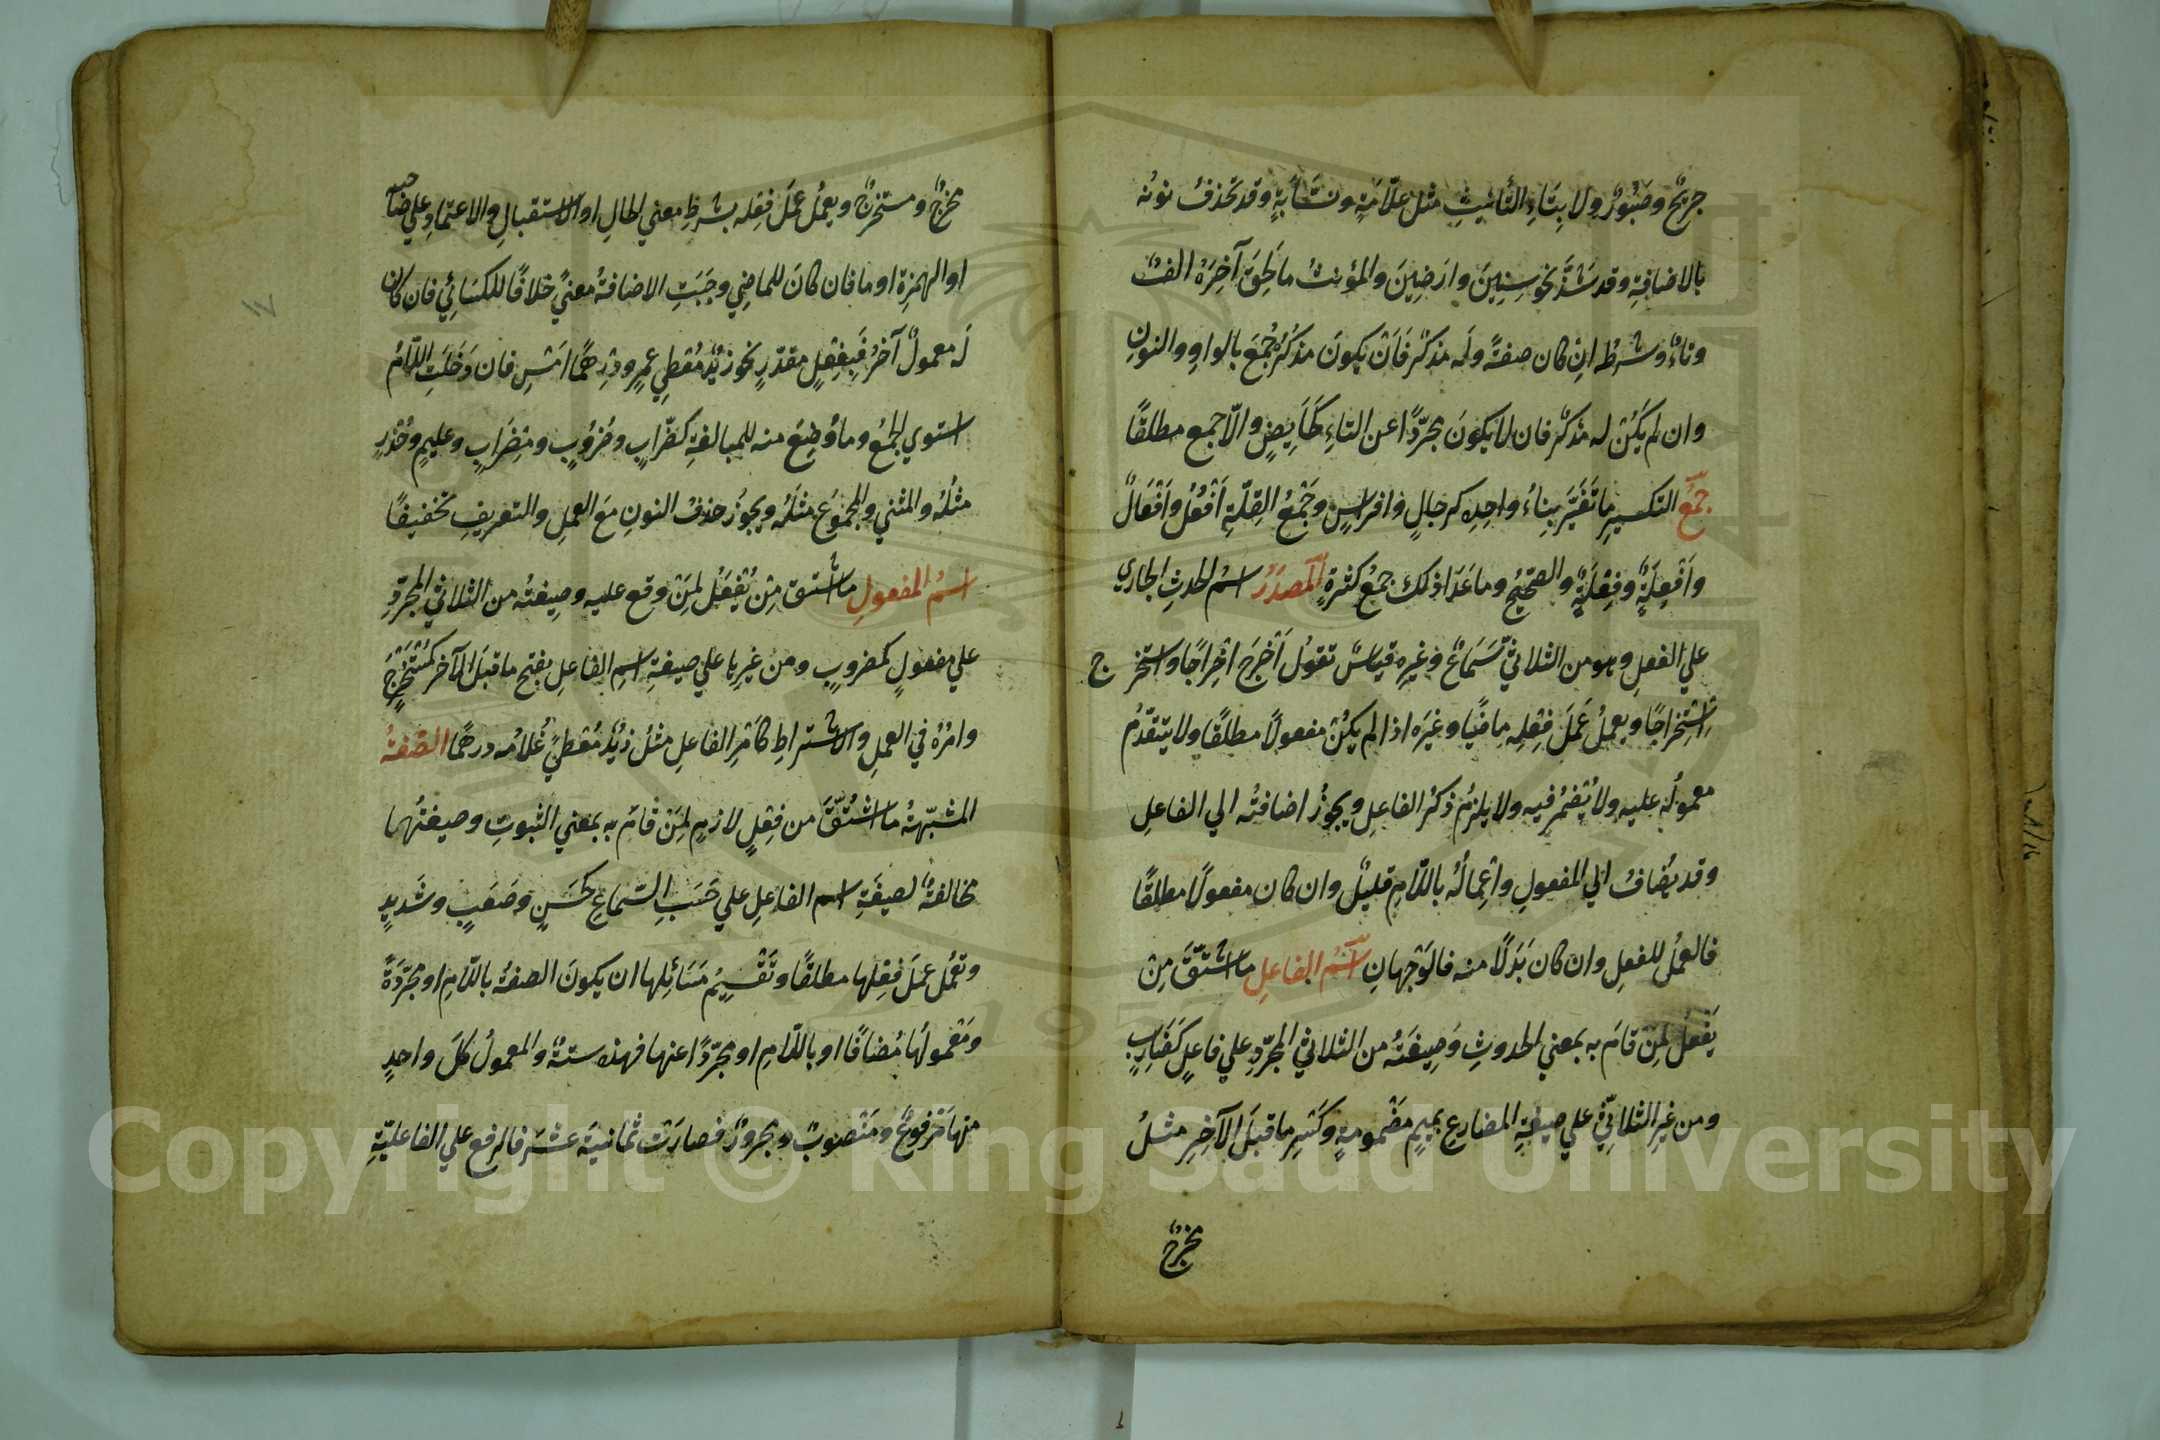 جريح وصبور ولا بتاء التأنيث مثل علّامة ونسّابة وقد تحذف نونه
بالاضافة وقد شذّ نحو سنين وارضين والمؤنث ما لحق آخره الف
وتاء وشرطه ان كان صفة وله مذكر فان يكون مذكره جمع بالواو والنون
وان لم يكن له مذكر فان لا يكون مجرّدا عن التاء كحايض والّا جمع مطلقًا
جمع التكسير ما تغيّر بناء واحده كرجال وافراس وجمع القلّة أفعُل وأفعال
وأفعِلة وفِعلة والصحيح وما عدا ذلك جمع كثرة المصدر اسم الحدث الجاري
علي الفعل وهو من الثلاثيّ سماع وغيره قياس تقول أخرج اخراجًا واستخرج
استخراجًا ويعمل عمل فعله ماضيًا وغيره اذا لم يكن مفعولًا مطلقًا ولا يتقدّم
معموله عليه ولا يضمر فيه ولا يلزم ذكر الفاعل ويجوز اضافته الي الفاعل
وقد يضاف الي المفعول وإعماله باللّام قليل وان كان مفعولًا مطلقًا
فالعمل للفعل وان كان بدلًا منه فالوجهان اسم الفاعل ما اشتقّ من
يفعل لمن قام به بمعني الحدوث وصيغته من الثلاثيّ المجرّد علي فاعل كضارب
ومن غير الثلاثيّ علي صيغة المضارع بميم مضمومة وكسر ما قبل الآخر مثل
مخرج
مخرج ومستخرج ويعمل عمل فعله بشرط معني الحال او الاستقبال والاعتماد علي صاحبه
او الهمزة او ما فان كان للماضي وجبت الاضافة معنيً خلافًا للكسائي فان كان
له معمول آخر فبفعل مقدّر نحو زيد معطي عمرو درهمًا امس فان دخلت اللّام
استوي الجمع وما وضع منه للمبالغة كضرّاب وضروب ومضراب وعليم وحذر
مثله والمثني والمجموع مثله ويجوز حذف النون مع العمل والتعريف تخفيفًا
اسم المفعول ما اشتق من يُفعل لمن وقع عليه وصيغته من الثلاثيّ المجرّد
علي مفعول كمضروب ومن غيره علي صيغة اسم الفاعل بفتح ما قبل الآخر كمستخرج
وامره في العمل والاشتراط كامر الفاعل مثل زيد معطيً غلامه درهمًا الصّفة
المشبّهة ما اشتُقّ من فعل لازم لمن قام به بمعني الثبوت وصيغتها
مخالفة لصيغة اسم الفاعل علي حسب السّماع كحسن وصعب وشديد
وتعمل عمل فعلها مطلقًا وتقسيم مسائلها ان يكون الصفة باللّام او مجرّدة
ومعمولها مضافًا او باللّام او مجرّدًا عنهما فهذه ستة والمعمول كل واحد
منها مرفوع ومنصوب ومجرور فصارت ثمانية عشر فالرفع علي الفاعليّة
Copyright © King Saud University